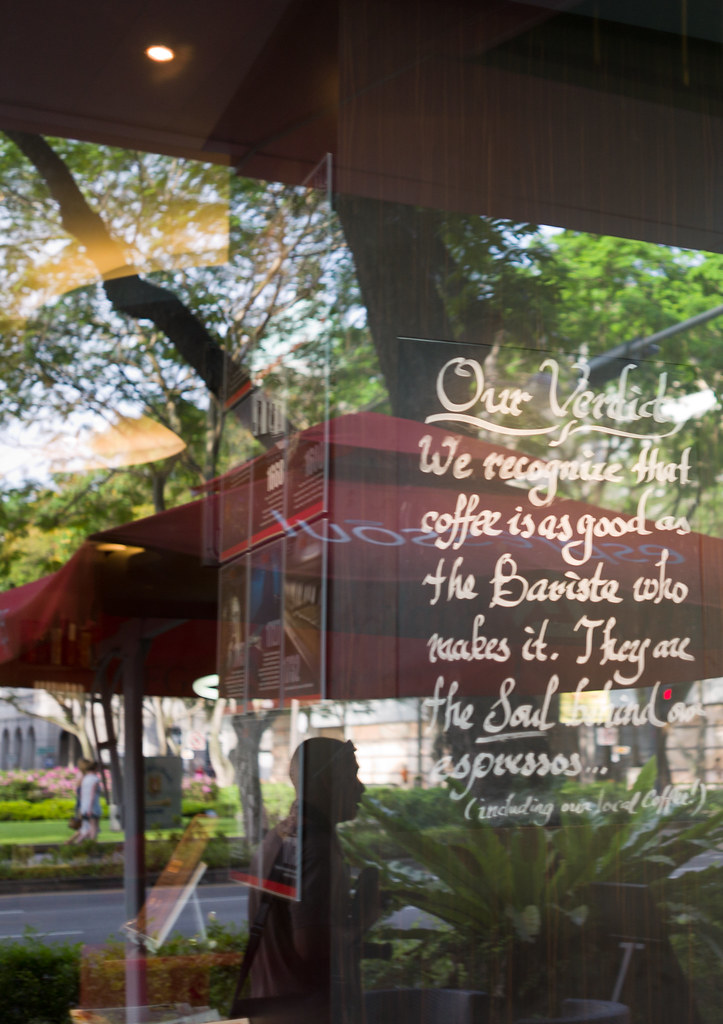 Our Verdict
We recognize that
coffee is as good as
the Barista who
makes it. They are
the Soul behind our
espressos...
(including our local Coffee!)